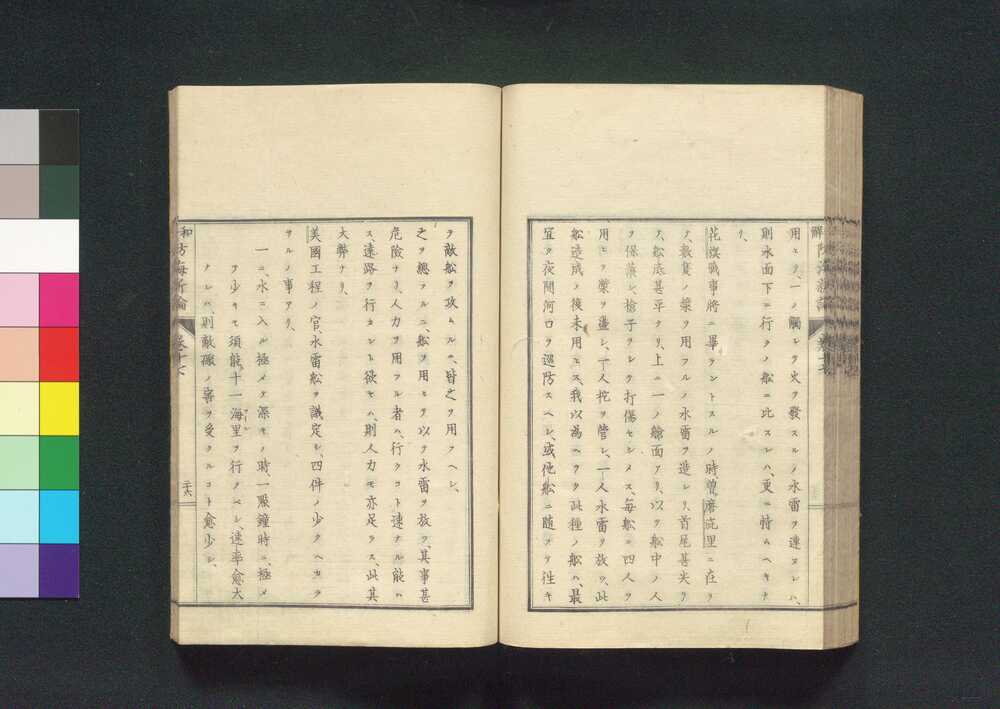 用ヒテ、一ノ觸レテ火ヲ發スルノ水雷ヲ連ヌレハ、
則水面下ニ行クノ船ニ比スレハ、更ニ恃ムヘキナ
リ、
花旗戰事將ニ畢ラントスルノ時、曾磨疵里ニ在リ
テ、數隻ノ槳ヲ用フルノ水雷ヲ造レリ、首尾甚尖リ
テ、船底甚平ナリ、上ニ一ノ艙面アリ、以テ船中ノ人
ヲ保護シ、槍子ヲシテ打傷セシメス、毎船ニ四人ヲ
用ヒテ槳ヲ盪シ、一人柁ヲ管シ、一人水雷ヲ放ツ、此
船造成ノ後未用エス、我以為ヘラク此種ノ船ハ、最
宜ク夜間河口ヲ巡防スヘシ、或他船ニ隨ツテ徃キ
ヲ敵船ヲ攻ムルニ、皆之ヲ用フヘシ、
之ヲ總フルニ、船ヲ用ヒテ以テ水雷ヲ放ツ、其事甚
危險ナリ、人力ヲ用フル者ハ、行クコト速ナル能ハ
ス、遠路ヲ行カント欲セハ、則人力モ亦足ラス、此其
大弊ナリ、
美國工程ノ官、水雷船ヲ議定シ、四件ノ少クヘカラ
サルノ事アリ、
一ニ、水ニ入ル極メテ深キノ時一點鐘時ニ、極メ
テ少キモ須ク十一海里ヲ行クベシ、速率愈大
ナレハ、則敵礮ノ害ヲ受クルコト愈少シ、
卷十七
二十六